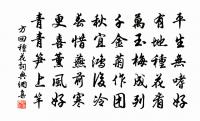 平生無嗜好
有地種花看
萬玉梅成列
千金菊作團
秋宜鴻後冷
春惜燕前寒
更喜薰風好
青青筍上竿
方回種花詞典網